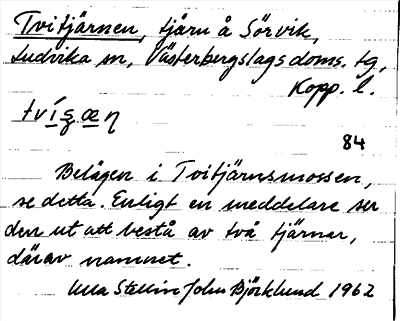 Tvitjärnen, tjärn å Sörvik,
Ludvika sn, Västerbergslags doms. tg,
Kopp. l.
84
Belägen i Tvitjärnsmossen,
se detta. Enligt en meddelare ser
den ut att bestå av två tjärnar,
därav namnet.
Ulla Stellin John Björklund 1962